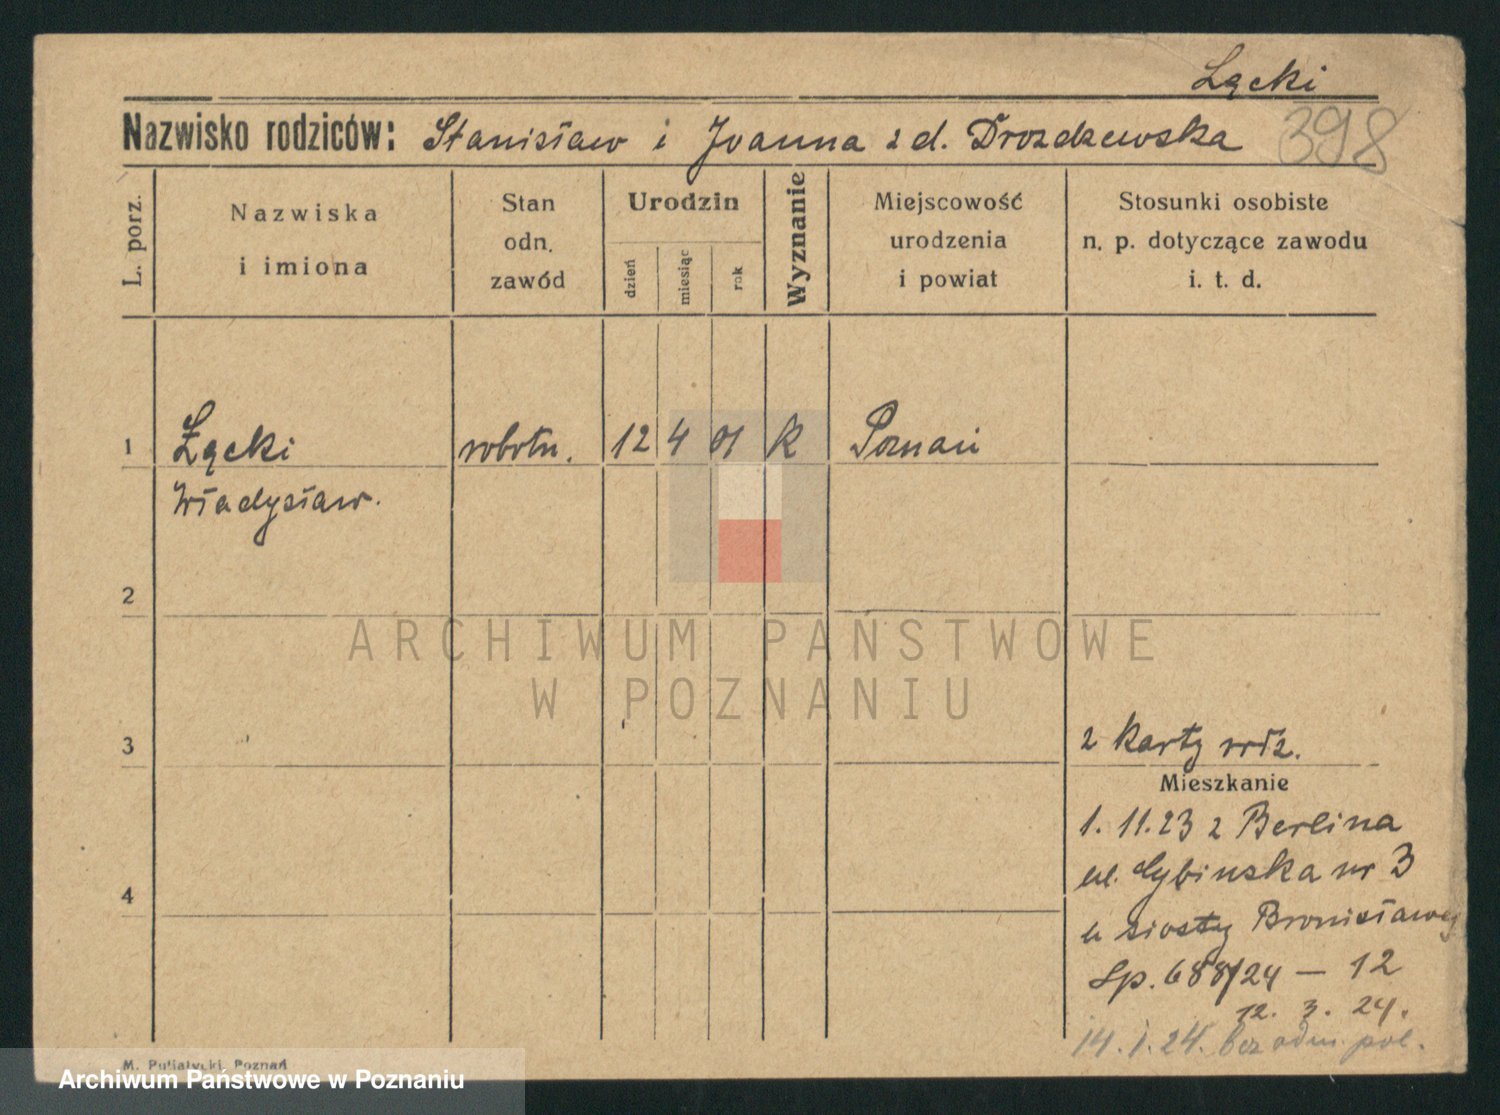 Łącki
Nazwisko rodziców: Stanisław i Joanna z d. Drozdzewska 398
L. porz.
Nazwiska
i imiona
Stan
odn.
zawód
Urodzin
dzień
miesiąc
rok
Wyznanie
Miejscowość
urodzenia
i powiat
Stosunki osobiste
n. p. dotyczące zawodu
i. t. d.
1 Łącki robotn. 12 4 01 k Poznań
Władysław.
2
ARCHIWUM PAŃSTWOWE
W POZNANIU
3
2 karty
Mieszkanie
1. 11. 23 z Berlina
ul. Cybinska nr 3
u siostry Bronisławy
4
Sp. 688/24 — 12
12. 3. 24.
14. 1. 24. bez odm. pol.
M. Putiatycki, Poznań
Archiwum Państwowe w Poznaniu